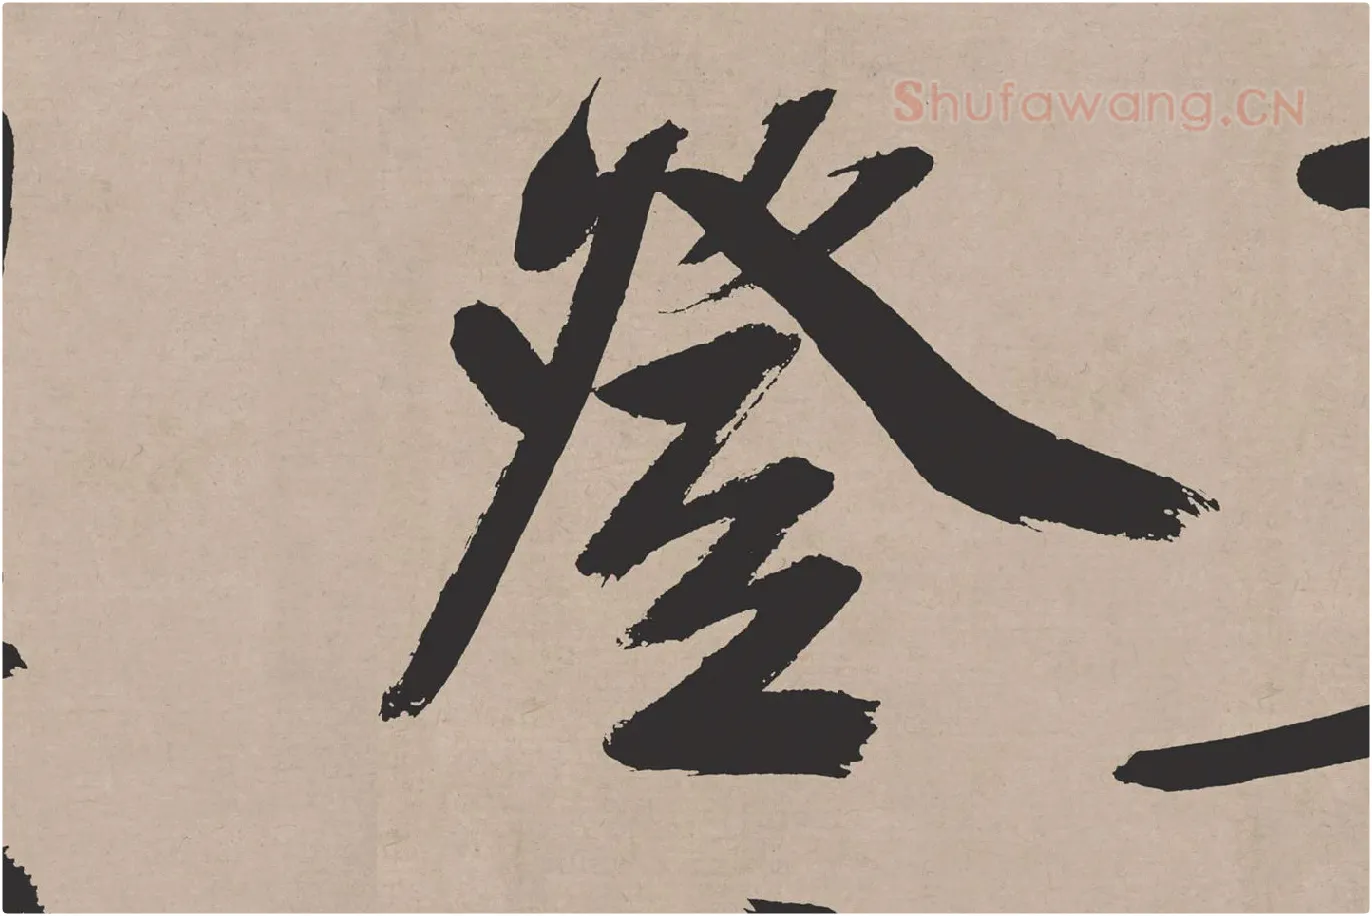 Shufawang.CN
登